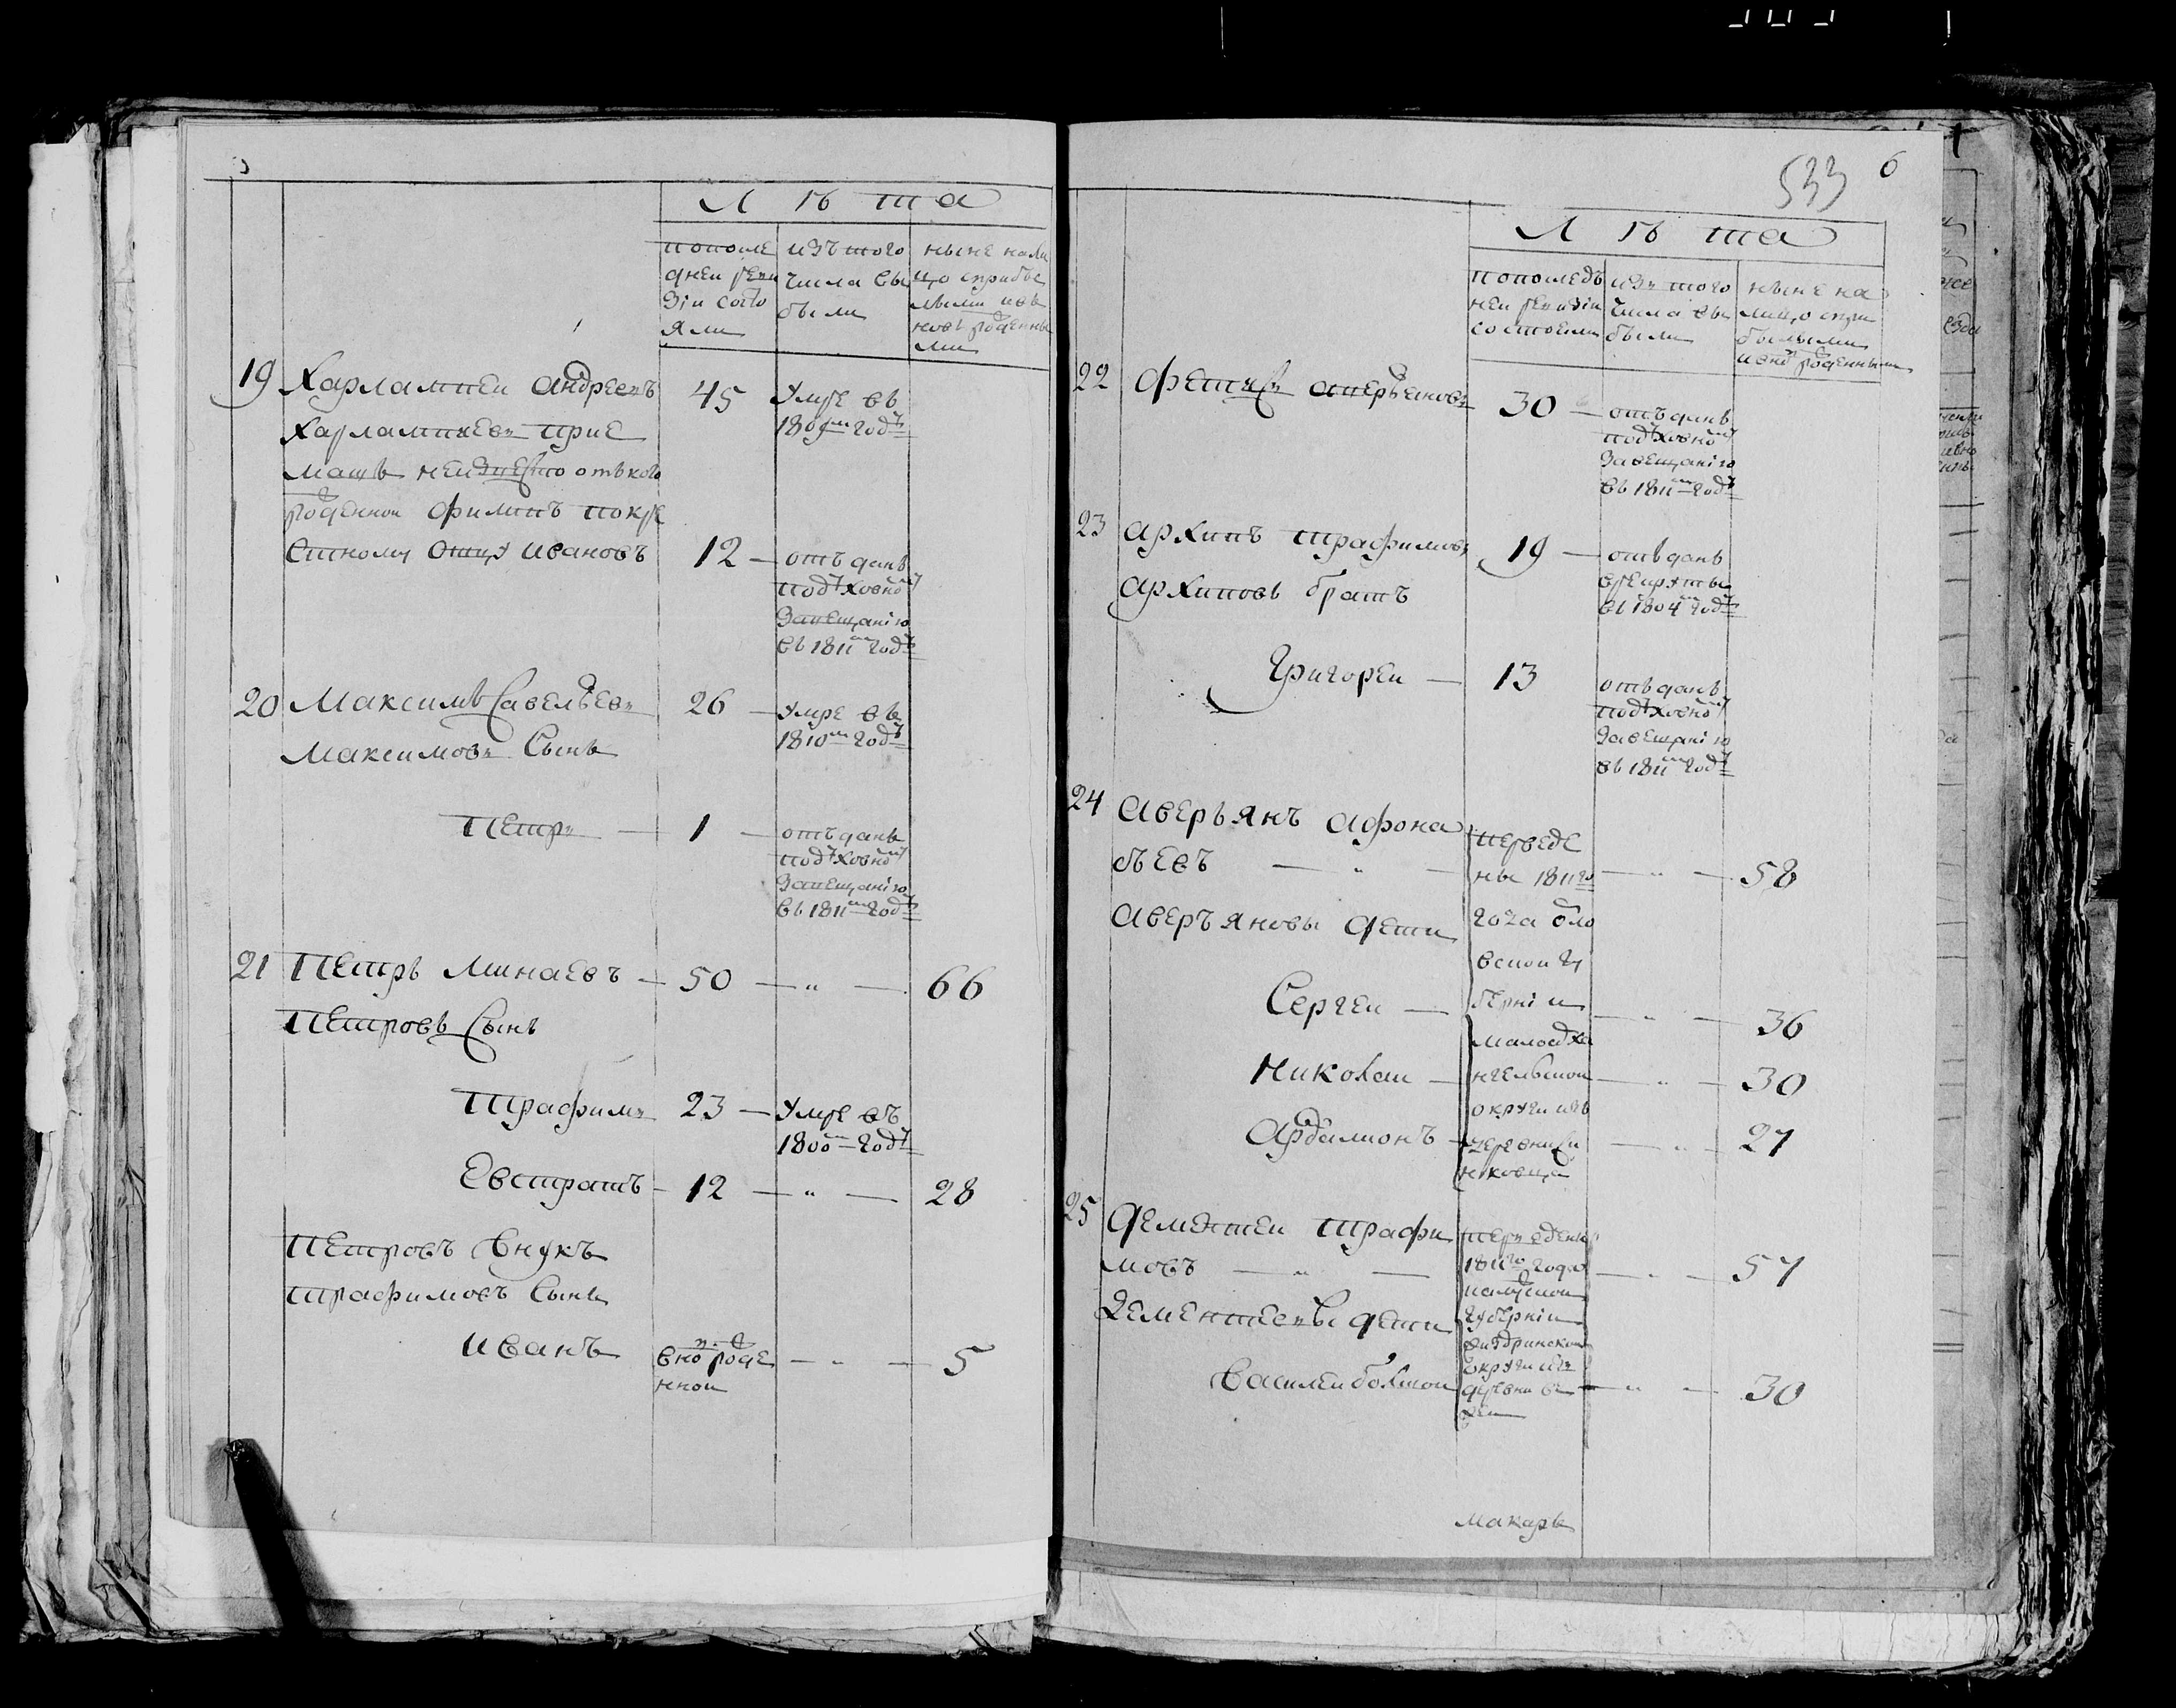 Л ѣ та
по после
дней реви
зіи состо
яли
изъ того
числа вы
были
ныне нали
цо съ прибы
лыми и вн
новь рожденны
ми
19 Харлампей Андреевъ 45 умре въ
1809м годѣ
Харлампиевъ прие
мышъ неизвестно отъ кого
рожденной Филипъ по кре
стному отцу Ивановъ 12 — отъданъ
по духовному
завещанію
въ 1811м годѣ
20 Максимъ Савельевъ 26 — умре въ
1810м годѣ
Максимовъ сынъ
Петръ — 1 — отъданъ
по духовному
завещанію
въ 1811м годѣ
21 Петръ Минаевъ — 50 — „ — 66
Петровъ сынъ
Трафимъ 23 — умре въ
1800м годѣ
Евстратъ — 12 — „ — 28
Петровъ внукъ
Трафимовъ сынъ
Иванъ вновь рожде — „ — 5
нной
533 6
Л ѣ та
по последъ
ней ревизіи
состояли
изъ того
числа вы
были
ныне на
лицо съ при
былыми
и вновь рожденными
22 Фетисъ Аверьяновъ 30 — отъданъ
по духовному
завещанію
въ 1811м годѣ
23 Архипъ Трафимовъ 19 — отъданъ
в рекруты
въ 1804м годѣ
Архиповъ братъ
Григорей — 13 отъданъ
по духовному
завещанію
въ 1811м годѣ
24 Аверьянъ Афона
сьевъ — „ —
переведе
ны 1811го — „ — 58
Аверьяновы дети
года Орло
вской гу
Сергей — берніи — „ — 36
Малоарха
Николай — нгельской — „ — 30
округи изъ
Ардалионъ — деревни — „ — 27
25 Дементей Трафи
мовъ — „ —
переведены
1811го года — „ — 57
Калужской
Дементеевы дети губерніи
Жиздринской
округи изъ
Василей большой деревни — „ — 30
Макаръ